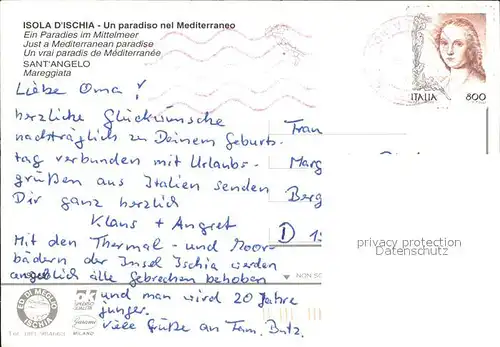 ISOLA D'ISCHIA - Un paradiso nel Mediterraneo
Ein Paradies im Mittelmeer
Just a Mediterranean paradise
Un vrai paradis de Méditerranée
SANT'ANGELO
Mareggiata
ITALIA 800
Liebe Oma!
herzliche Glückwünsche
nachträglich zu Deinem Geburts-
tag verbunden mit Urlaubs-
grüßen aus Italien senden
Dir ganz herzlich
Klaus + Angret
Mit den Thermal- und Moor-
bädern der Insel Ischia werden
angeblich alle Gebrechen behoben
und man wird 20 Jahre
jünger.
Viele Grüße an Fam. Butz.
Frau
Marg
Berg
D 1
privacy protection
Datenschutz
NON SC
ED. DI MEGLIO
ISCHIA
MILANO